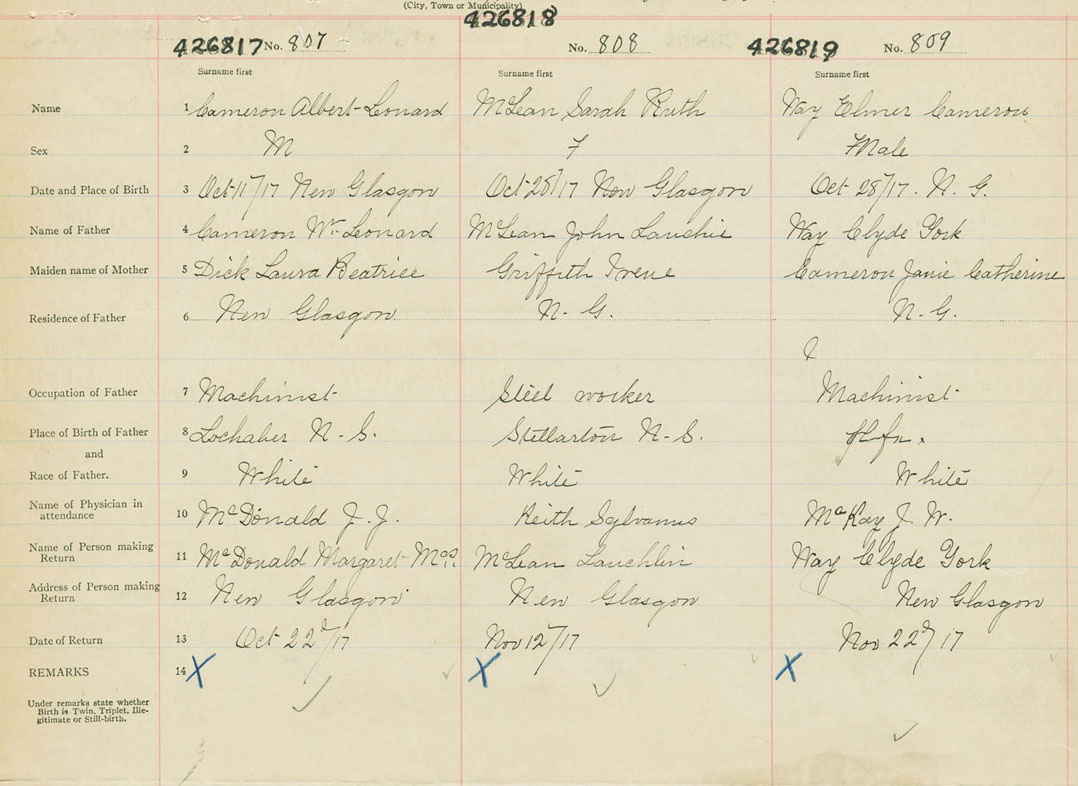 (City, Town or Municipality)
426817 No. 807 426818 No. 808 426819 No. 809
Surname first Surname first Surname first
Name 1 Cameron Albert Lonard McLean Sarah Ruth Way Elmer Cameron
Sex 2 M F Male
Date and Place of Birth 3 Oct 11/17 New Glasgow Oct 28/17 New Glasgow Oct 28/17. N. G.
Name of Father 4 Cameron Wm Leonard McLean John Lauchie Way Clyde York
Maiden name of Mother 5 Dick Laura Beatrice Griffith Irene Cameron Janie Catherine
Residence of Father 6 New Glasgow N. G. N. G.
Occupation of Father 7 Machinist Steel worker Machinist
Place of Birth of Father 8 Lochaber N. S. Stellarton N. S. Hfx.
and
Race of Father. 9 White White White
Name of Physician in
attendance 10 McDonald J. J. Keith Sylvanus McKay J. W.
Name of Person making
Return 11 McDonald Margaret Mrs. McLean Lauchlin Way Clyde York
Address of Person making
Return 12 New Glasgow New Glasgow New Glasgow
Date of Return 13 Oct 22d/17 Nov 12/17 Nov 22d/17
REMARKS 14 X X X
Under remarks state whether
Birth is Twin, Triplet, Ille-
gitimate or Still-birth.